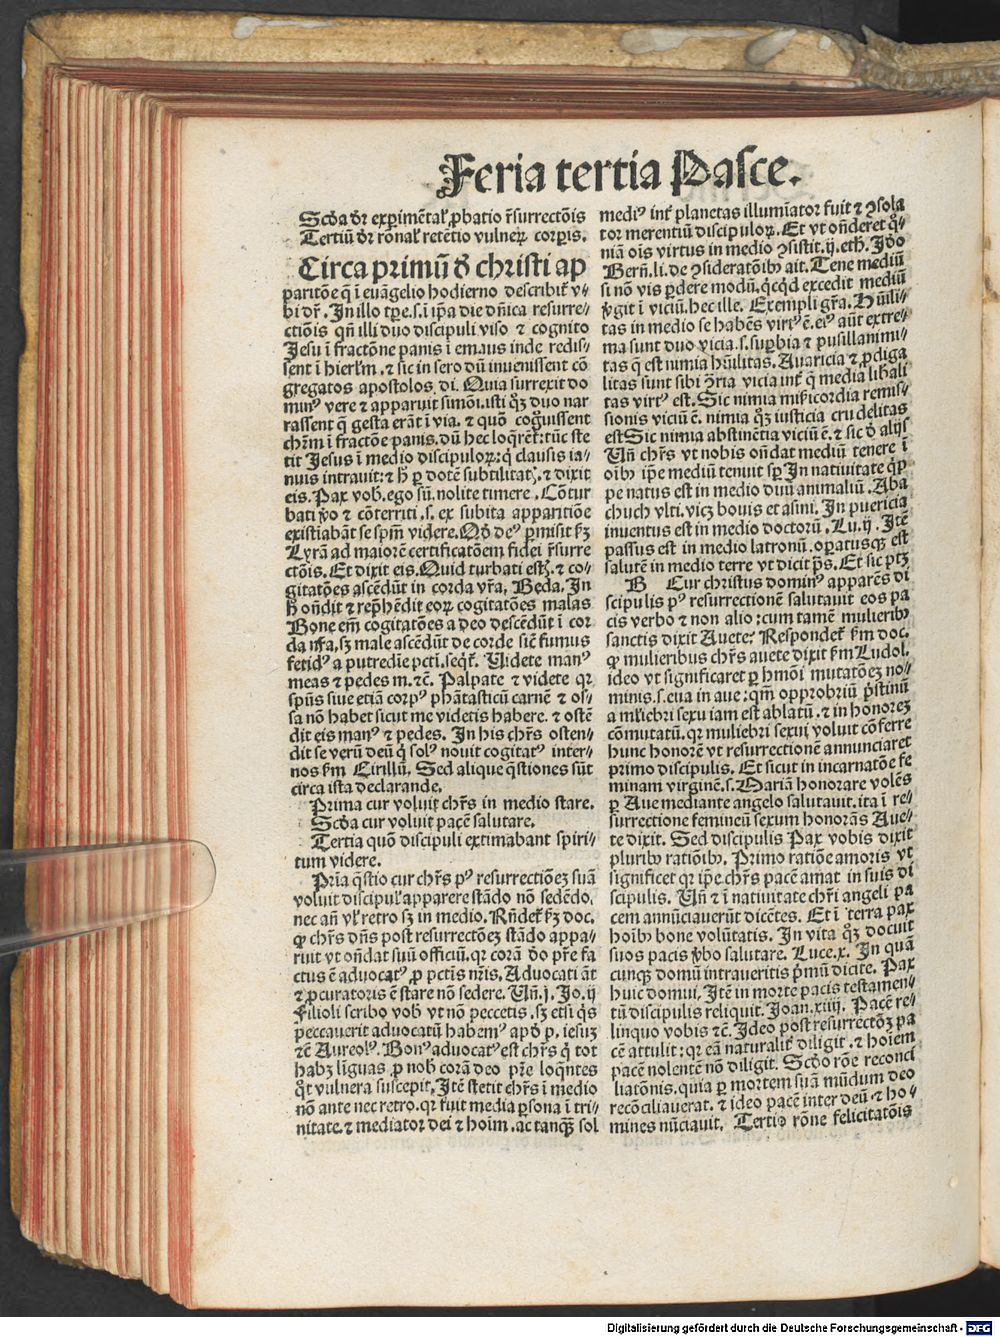 Feria tertia Pasce.
Scđa dr̄ experimētal' ꝓbatio r̄surrectōis
Tertiū dr̄ rōnal' retētio vulneꝝ corꝑis.
Circa primū đ christi ap
paritōe q̄ ī euāgelio hodierno describit̄ v⸗
bi dr̄. In illo tp̄e.s.ī ip̄a die dn̄ica resurre⸗
ctiōis qn̄ illi duo discipuli viso ⁊ cognito
Jesu ī fractōne panis ī emaus inde redis⸗
sent ī hierl'm.⁊ sic in sero dū inuenissent cō
gregatos apostolos di. Quia surrexit do
minꝰ vere ⁊ apparuit simōi.isti qꝫ duo nar
rassent q̄ gesta erāt ī via.⁊ quō cog̅uissent
chr̄m ī fractōe panis.dū hec loq̄rēt̄:tūc ste
tit Jesus ī medio discipuloꝝ:q̄ clausis ia⸗
nuis intrauit:⁊ h̄ ꝑ dotē subtilitatꝭ.⁊ dixit
eis. Pax vob.ego sū.nolite timere. Cōtur
bati v̄o ⁊ cōterriti.s.ex subita apparitiōe
existiabāt se spm̄ videre. Qđ deꝰ ꝑmisit ẜꝫ
Lyrā ad maiorē certificatōem fidei r̄surre
ctōis. Et dixit eis. Quid turbati estꝭ.⁊ co⸗
gitatōes ascēdūt in corda vr̄a. Beda. In
h̄ on̄dit ⁊ rep̄hēdit eoꝝ cogitatōes malas
Bone em̄ cogitatōes a deo descēdūt ī cor
da nr̄a,sꝫ male ascēdūt de corde sic̄ fumus
fetidꝰ a putredīe pctī.seq̄t̄. Videte manꝰ
meas ⁊ pedes m.⁊c̄. Palpate ⁊ videte qꝛ
spūs siue etiā corpꝰ phātasticū carnē ⁊ os⸗
sa nō habet sicut me videtis habere.⁊ ostē
dit eis manꝰ ⁊ pedes. In his chr̄s osten⸗
dit se verū deū q̄ solꝰ nouit cogitatꝰ inter⸗
nos ẜm Cirillū. Sed alique q̄stiones sūt
circa ista declarande.
Prima cur voluit chr̄s in medio stare.
Scđa cur voluit pacē salutare.
Tertia quō discipuli extimabant spiri⸗
tum videre.
Pr̄ia q̄stio cur chr̄s pꝰ resurrectiōeꝫ suā
voluit discipul' apparere stādo nō sedēdo,
nec an̄ vl' retro sꝫ in medio. Rn̄det̄ ẜꝫ doc.
ꝙ chr̄s dn̄s post resurrectōeꝫ stādo appa⸗
ruit vt on̄dat suū officiū.qꝛ corā đo pr̄e fa
ctus ē aduocatꝰ ꝓ pctīs nr̄is. Aduocati āt
⁊ ꝓcuratoris ē stare nō sedere. Vn̄.j.Jo.ij
Filioli scribo vob vt nō peccetis.sꝫ etsi q̄s
peccauerit aduocatū habemꝰ apđ p.iesuꝫ
⁊c̄ Aureolꝰ. Bonꝰ aduocatꝰ est chr̄s q̄ tot
habꝫ līguas ꝓ nob corā deo pr̄e loq̄ntes
q̊t vulnera suscepit. Itē stetit chr̄s ī medio
nō ante nec retro.qꝛ fuit media ꝑsona ī tri⸗
nitate.⁊ mediator dei ⁊ hoīm.ac tanqꝫ sol
mediꝰ int̄ planetas illumīator fuit ⁊ ꝯsola
tor merentiū discipuloꝝ. Et vt on̄deret q̄⸗
niā oīs virtus in medio ꝯsistit.ij.eth. Iđo
Bern̄.li.de ꝯsideratōibꝰ ait. Tene mediū
si nō vis ꝑdere modū.q̄cqd excedit mediū
v̄git ī viciū.hec ille. Exempli gr̄a. Hūili⸗
tas in medio se habēs virtꝰ ē.eiꝰ aūt extre⸗
ma sunt duo vicia.s.suꝑbia ⁊ pusillanimi⸗
tas q̄ est nimia hūilitas. Auaricia ⁊ ꝓdiga
litas sunt sibi ꝯ̄ria vicia int̄ q̄ media libali
tas virtꝰ est. Sic nimia misericordia remis⸗
sionis viciū ē. nimia qꝫ iusticia crudelitas
est Sic nimia abstinētia viciū ē.⁊ sic đ alijs
Vn̄ chr̄s vt nobis on̄dat mediū tenere ī
oībꝰ ip̄e mediū tenuit sꝑ In natiuitate q̄ꝑ
pe natus est in medio duū animaliū. Aba
chuch vlti.vicꝫ bouis et asini. In puericia
inuentus est in medio doctorū. Lu.ij. Itē
passus est in medio latronū.operatusqꝫ est
salutē in medio terre vt dicit p̄s. Et sic ptꝫ
B Cur christus dominꝰ apparēs di
scipulis pꝰ resurrectionē salutauit eos pa
cis verbo ⁊ non alio:cum tamē mulieribꝰ
sanctis dixit Auete? Respondet̄ ẜm doc.
ꝙ mulieribus chr̄s auete dixit ẜm Ludol.
ideo vt significaret ꝑ hmōi mutatōeꝫ no⸗
minis.s.eua in aue:qm̄ opprobriū pr̄stinū
a ml'iebri sexu iam est ablatū.⁊ in honoreꝫ
cōmutatū.qꝛ muliebri sexui voluit cōferre
hunc honorē vt resurrectionē annunciaret
primo discipulis. Et sicut in incarnatōe fe
minam virginē.s. Mariā honorare volēs
ꝑ Aue mediante angelo salutauit.ita ī re⸗
surrectione femineū sexum honorās Aue⸗
te dixit. Sed discipulis Pax vobis dixit
pluribꝰ ratiōibꝰ. Primo ratiōe amoris vt
significet qꝛ ip̄e chr̄s pacē amat in suis di
scipulis. Vn̄ ⁊ ī natiuitate chr̄i angeli pa
cem annūciauerūt dicētes. Et ī terra pax
hoībꝰ bone volūtatis. In vita qꝫ docuit
suos pacis v̄bo salutare. Luce.x. In quā
cunqꝫ domū intraueritis p̄mū dicite. Pax
huic domui. Itē in morte pacis testamen⸗
tū discipulis reliquit. Joan.xiiij. Pacē re⸗
linquo vobis ⁊c̄. Ideo post resurrectōꝫ pa
cē attulit:qꝛ eā naturalit̄ diligit.⁊ hoīem
pacē nolentē nō diligit. Scđo rōe reconci
liatōnis.quia ꝑ mortem suā mūdum deo
recōciliauerat.⁊ ideo pacē inter deū ⁊ ho⸗
mines nūciauit. Tertio rōne felicitatōis
Digitalisierung gefördert durch die Deutsche Forschungsgemeinschaft - DFG